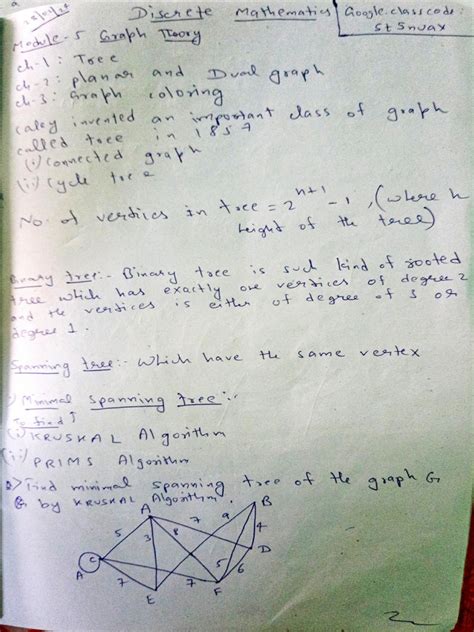 Discrete Mathematics
Google classcode:
st5nvax
Module-5 Graph Theory
ch-1: Tree
ch-2: planar and Dual graph
ch-3: Graph coloring
caley invented an important class of graph
called tree in 1857
(i) connected graph
(ii) cycle tree
No. of vertices in tree = 2^{n+1} - 1, (where h
height of the tree)
Binary tree:- Binary tree is such kind of rooted
tree which has exactly one vertices of degree 2
and the vertices is either of degree of 3 or
degree 1.
Spanning tree:- which have the same vertex
Minimal spanning tree:-
To find
(i) KRUSKAL Algorithm
(ii) PRIMS Algorithm
Q> Find minimal spanning tree of the graph G
G by KRUSKAL Algorithm.
A B
5 3 8 7 9 4
A C D
7 7 5 6
E F